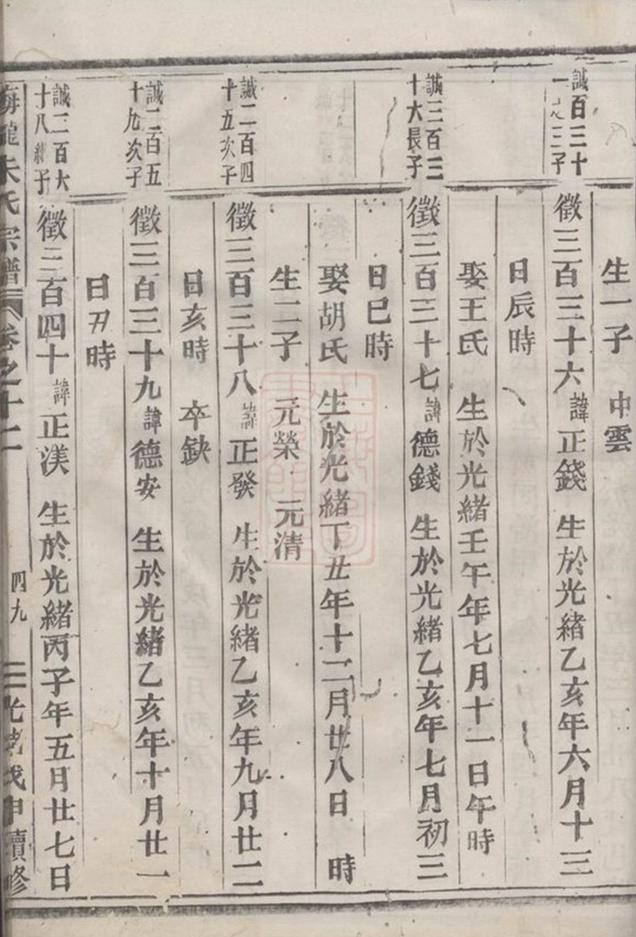 生一子 中雲
誠百三十
一之三子
徵三百三十六 諱 正錢 生於光緒乙亥年六月十三
日辰時
娶王氏 生於光緒壬午年七月十一日午時
誠三百三
十六長子
徵三百三十七 諱 德錢 生於光緒乙亥年七月初三
日巳時
娶胡氏 生於光緒丁丑年十二月廿八日 時
生二子 元榮 元清
誠二百四
十五次子
徵三百三十八 諱 正發 生於光緒乙亥年九月廿二
日亥時 卒缺
誠二百五
十九次子
徵三百三十九 諱 德安 生於光緒乙亥年十月廿一
日丑時
誠二百六
十八繼子
徵三百四十 諱 正渼 生於光緒丙子年五月廿七日
朱氏宗譜 卷之十二 四九 光緒戊申續修